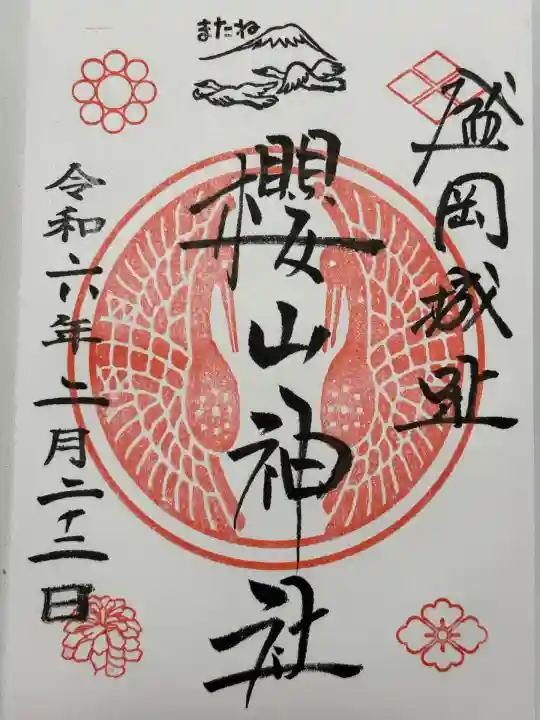 またね
盛岡城趾
櫻山神社
令和六年二月二十二日